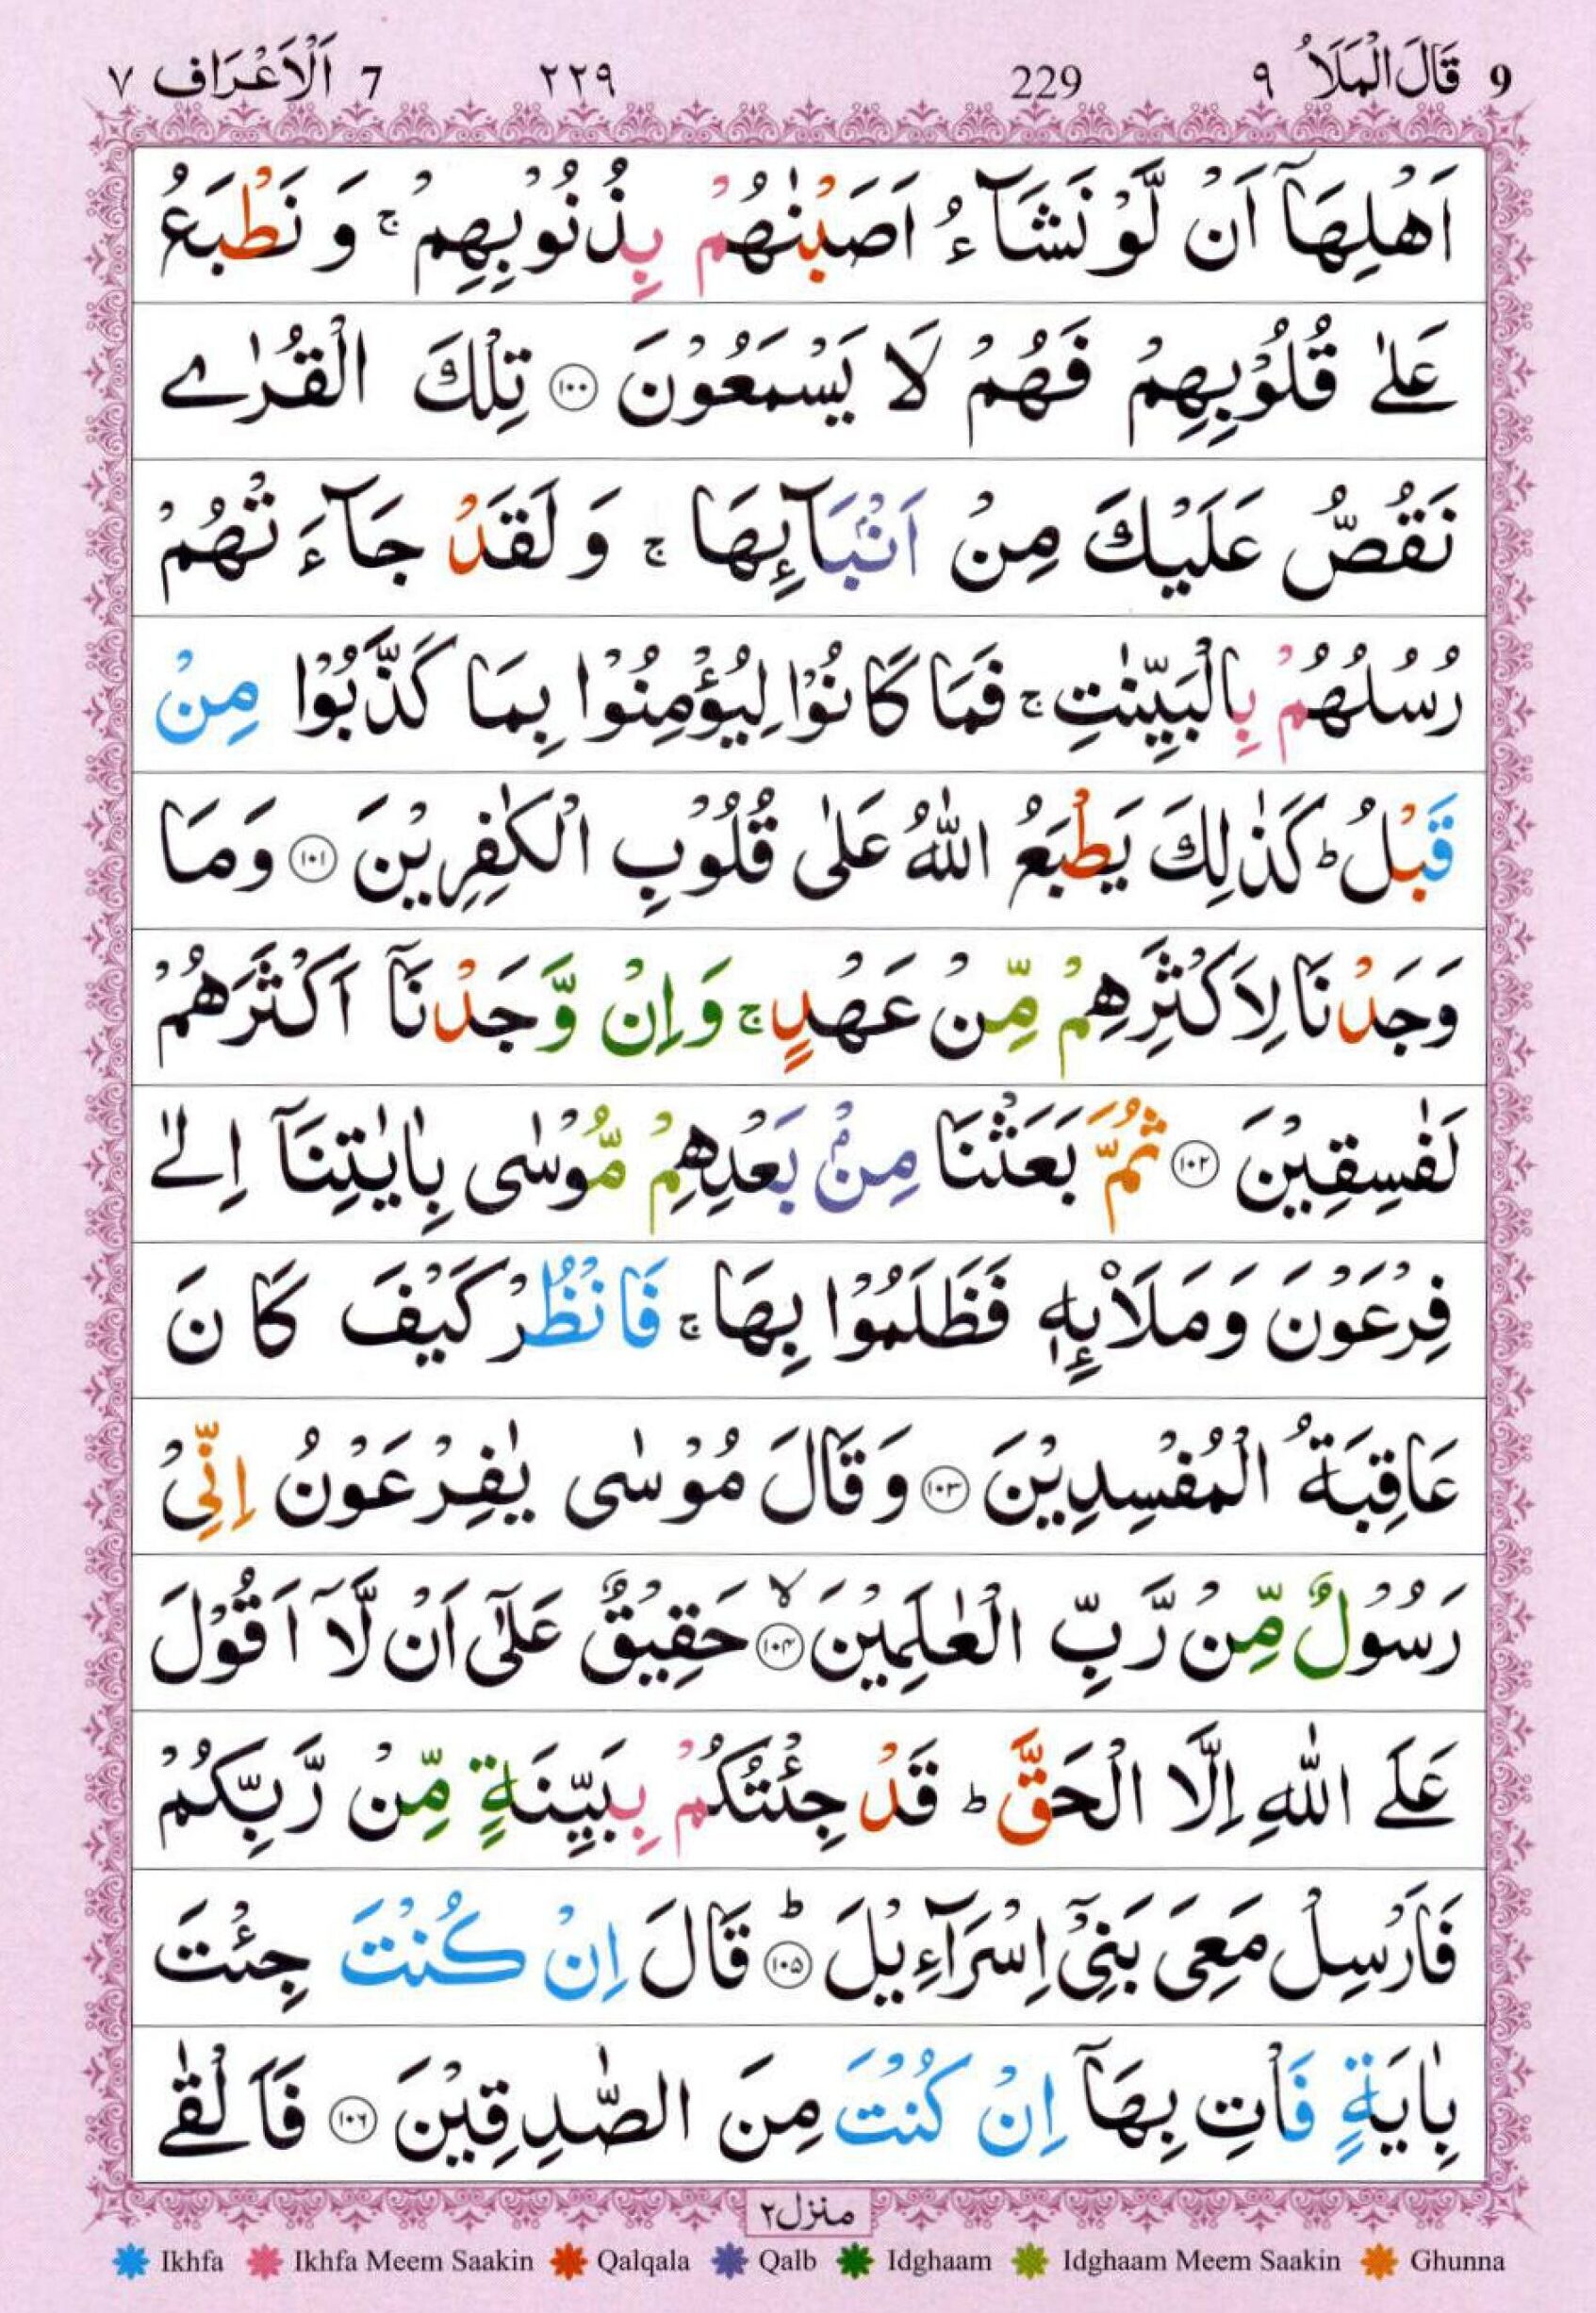 9 قَالَ الْمَلَاُ ٩ 229 ٢٢٩ 7 اَلْاَعْرَاف ٧
اَهْلِهَاۤ اَنْ لَّوْ نَشَآءُ اَصَبْنٰهُمْ بِذُنُوْبِهِمْ ۚ وَ نَطْبَعُ
عَلٰى قُلُوْبِهِمْ فَهُمْ لَا يَسْمَعُوْنَ ۝١٠٠ تِلْكَ الْقُرٰى
نَقُصُّ عَلَيْكَ مِنْ اَنْۢبَآئِهَا ۚ وَ لَقَدْ جَآءَتْهُمْ
رُسُلُهُمْ بِالْبَيِّنٰتِ ۚ فَمَا كَانُوْا لِيُؤْمِنُوْا بِمَا كَذَّبُوْا مِنْ
قَبْلُ ؕ كَذٰلِكَ يَطْبَعُ اللّٰهُ عَلٰى قُلُوْبِ الْكٰفِرِيْنَ ۝١٠١ وَمَا
وَجَدْنَا لِاَكْثَرِهِمْ مِّنْ عَهْدٍ ۚ وَاِنْ وَّجَدْنَاۤ اَكْثَرَهُمْ
لَفٰسِقِيْنَ ۝١٠٢ ثُمَّ بَعَثْنَا مِنْۢ بَعْدِهِمْ مُّوْسٰى بِاٰيٰتِنَاۤ اِلٰى
فِرْعَوْنَ وَمَلَا۟ئِهٖ فَظَلَمُوْا بِهَا ۚ فَانْظُرْ كَيْفَ كَانَ
عَاقِبَةُ الْمُفْسِدِيْنَ ۝١٠٣ وَقَالَ مُوْسٰى يٰفِرْعَوْنُ اِنِّيْ
رَسُوْلٌ مِّنْ رَّبِّ الْعٰلَمِيْنَ ۙ‏۝١٠٤ حَقِيْقٌ عَلٰۤى اَنْ لَّاۤ اَقُوْلَ
عَلَى اللّٰهِ اِلَّا الْحَقَّ ؕ قَدْ جِئْتُكُمْ بِبَيِّنَةٍ مِّنْ رَّبِّكُمْ
فَاَرْسِلْ مَعِىَ بَنِىْۤ اِسْرَآءِيْلَ ؕ‏۝١٠٥ قَالَ اِنْ كُنْتَ جِئْتَ
بِاٰيَةٍ فَاْتِ بِهَاۤ اِنْ كُنْتَ مِنَ الصّٰدِقِيْنَ ۝١٠٦ فَاَلْقٰى
منزل٢
Ikhfa Ikhfa Meem Saakin Qalqala Qalb Idghaam Idghaam Meem Saakin Ghunna